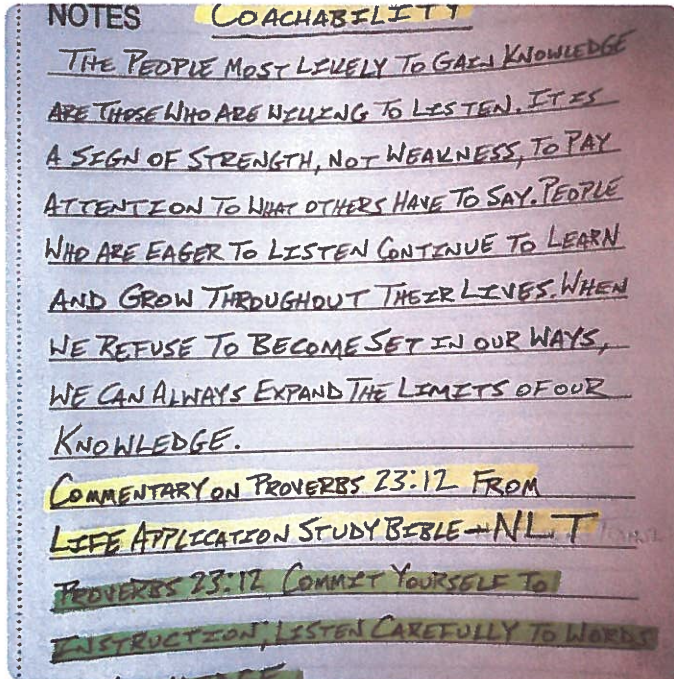 NOTES COACHABILITY
THE PEOPLE MOST LIKELY TO GAIN KNOWLEDGE
ARE THOSE WHO ARE WILLING TO LISTEN. IT IS
A SIGN OF STRENGTH, NOT WEAKNESS, TO PAY
ATTENTION TO WHAT OTHERS HAVE TO SAY. PEOPLE
WHO ARE EAGER TO LISTEN CONTINUE TO LEARN
AND GROW THROUGHOUT THEIR LIVES. WHEN
WE REFUSE TO BECOME SET IN OUR WAYS,
WE CAN ALWAYS EXPAND THE LIMITS OF OUR
KNOWLEDGE.
COMMENTARY ON PROVERBS 23:12 FROM
LIFE APPLICATION STUDY BIBLE - NLT
PROVERBS 23:12 COMMIT YOURSELF TO
INSTRUCTION; LISTEN CAREFULLY TO WORDS